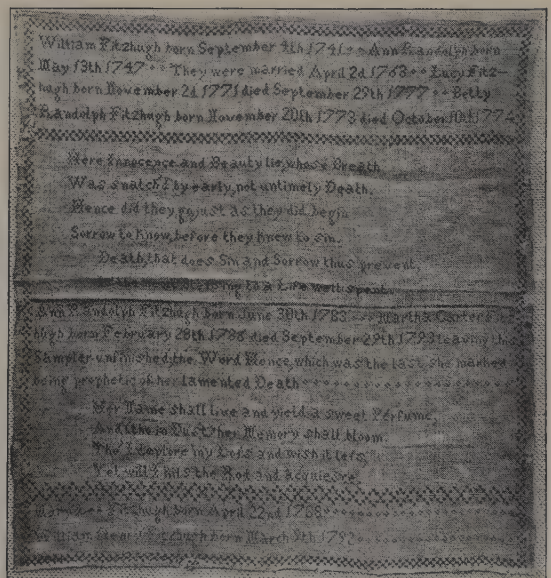 William Fitzhugh born September 4th 1741 Ann Randolph born
May 13th 1747 They were married April 2d 1763 Lucy Fitz-
hugh born November 2d 1771 died September 29th 1777 Betty
Randolph Fitzhugh born November 20th 1773 died October 10th 1774
Here Innocence and Beauty lie, whose Breath
Was snatch'd by early, not untimely Death.
Hence did they go, just as they did begin
Sorrow to know, before they knew to sin.
Death, that does Sin and Sorrow thus prevent,
Is the next Blessing to a Life well spent.
Ann Randolph Fitzhugh born June 30th 1783 Martha Carter
hugh born February 28th 1786 died September 29th 1793 leaving this
Sampler unfinished, the Word Hence, which was the last she marked
being prophetic of her lamented Death
Her Fame shall live and yield a sweet Perfume,
And tho in Dust her Memory shall bloom.
Tho I deplore my Loss and wish it less,
Yet will I kiss the Rod and acquiesce
Fitzhugh born April 22nd 1788
William Henry Fitzhugh born March 9th 1792